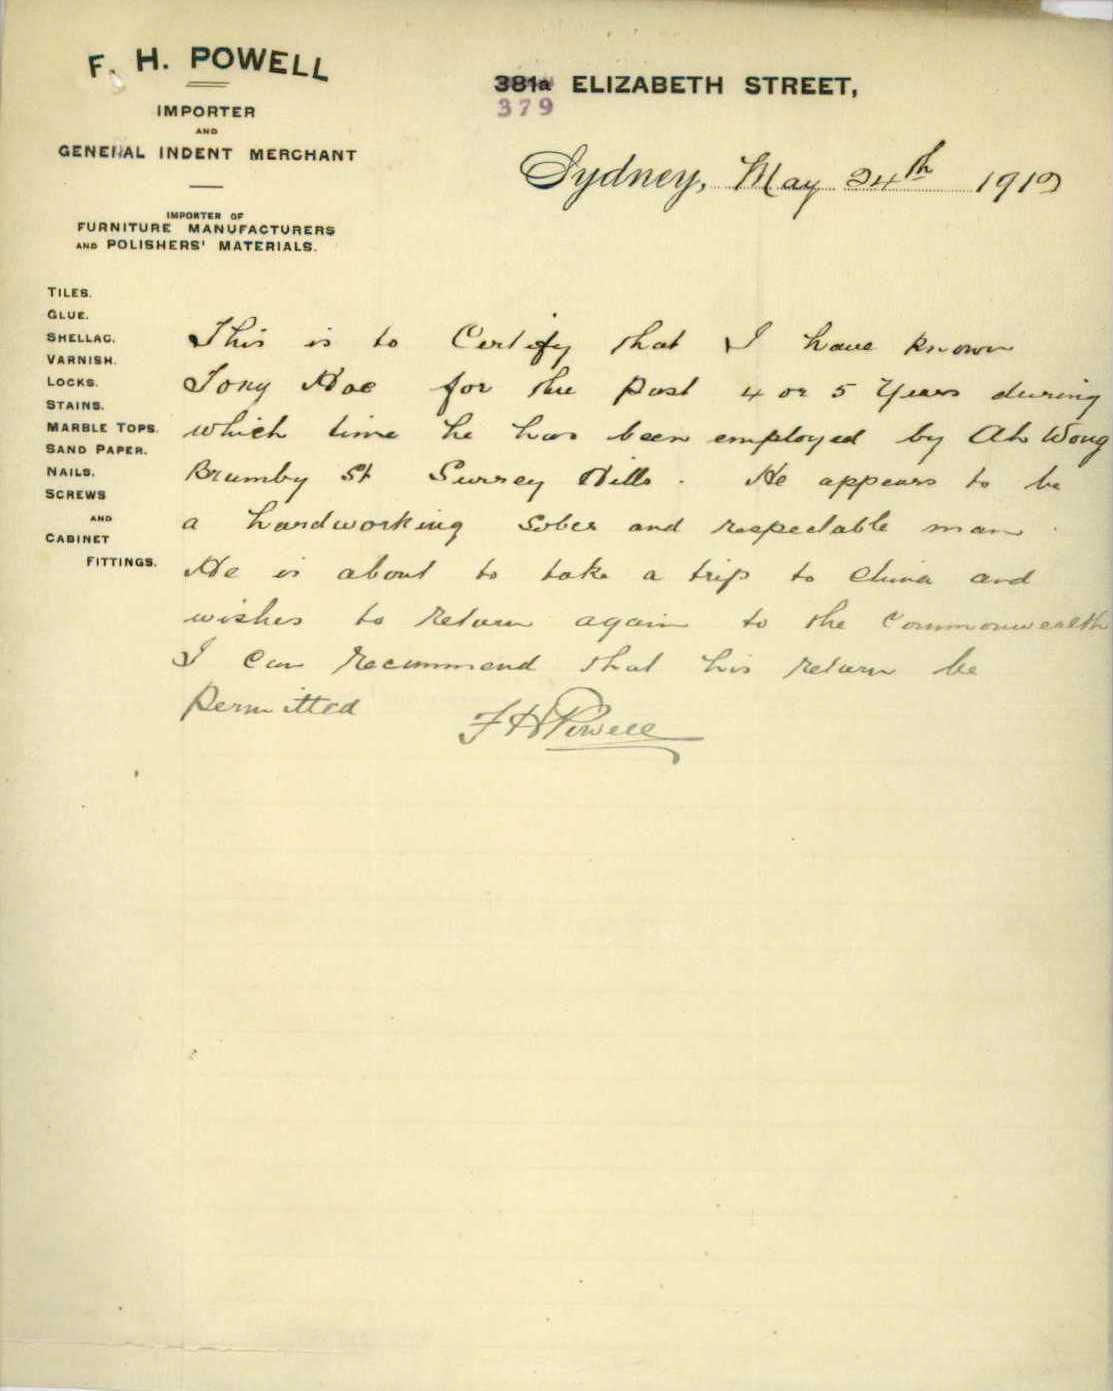 F. H. POWELL
IMPORTER
AND
GENERAL INDENT MERCHANT
IMPORTER OF
FURNITURE MANUFACTURERS
AND POLISHERS' MATERIALS.
381a ELIZABETH STREET,
379
Sydney, May 24th 191
TILES.
GLUE.
SHELLAC.
VARNISH.
LOCKS.
STAINS.
MARBLE TOPS.
SAND PAPER.
NAILS.
SCREWS
AND
CABINET
FITTINGS.
This is to Certify that I have known
for the past 4 or 5 Years during
which time he has been employed by Ah Wong
Brumby St Surrey Hills. He appears to be
a hardworking sober and respectable man.
He is about to take a trip to China and
wishes to return again to the Commonwealth
I can recommend that his return be
Permitted
F H Powell